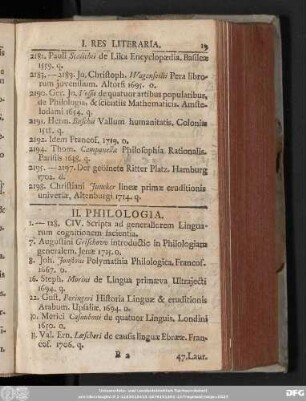 I. RES LITERARIA. 19
2182. Pauli Scalichii de Lika Encyclopædia. Basileæ
1559. q.
2183.—2189. Jo. Christoph. Wagenseilii Pera libro-
rum juvenilium. Altorfi 1695. o.
2190. Ger. Jo. Vossii de quatuor artibus popularibus,
de Philologia, & scientiis Mathematicis. Amste-
lodami 1654. q.
2191. Herm. Buschii Vallum humanitatis. Coloniæ
1518. q.
2192. Idem Francof. 1719. o.
2194. Thom. Campanella Philosophia Rationalis.
Parisiis 1638. q.
2195.—2197. Der geöfnete Ritter Platz. Hamburg
1702. o.
2198. Christiani Juncker lineæ primæ eruditionis
universæ, Altenburgi 1714. q.
II. PHILOLOGIA.
1.—128. CIV. Scripta ad generaliorem Lingua-
rum cognitionem facientia.
7. Augustini Grischovv introductio in Philologiam
generalem. Jenæ 1715. o.
8. Joh. Jonstoni Polymathia Philologica. Francof.
1667. o.
16. Steph. Morini de Lingua primæva Ultrajecti
1694. q.
22. Gust. Peringeri Historia Linguæ & eruditionis
Arabum. Upsaliæ. 1694. o.
30. Merici Casauboni de quatuor Linguis. Londini
1650. o.
35. Val. Ern. Lœscheri de causis linguæ Ebrææ. Fran-
cof. 1706. q.
B 2 47. Laur.